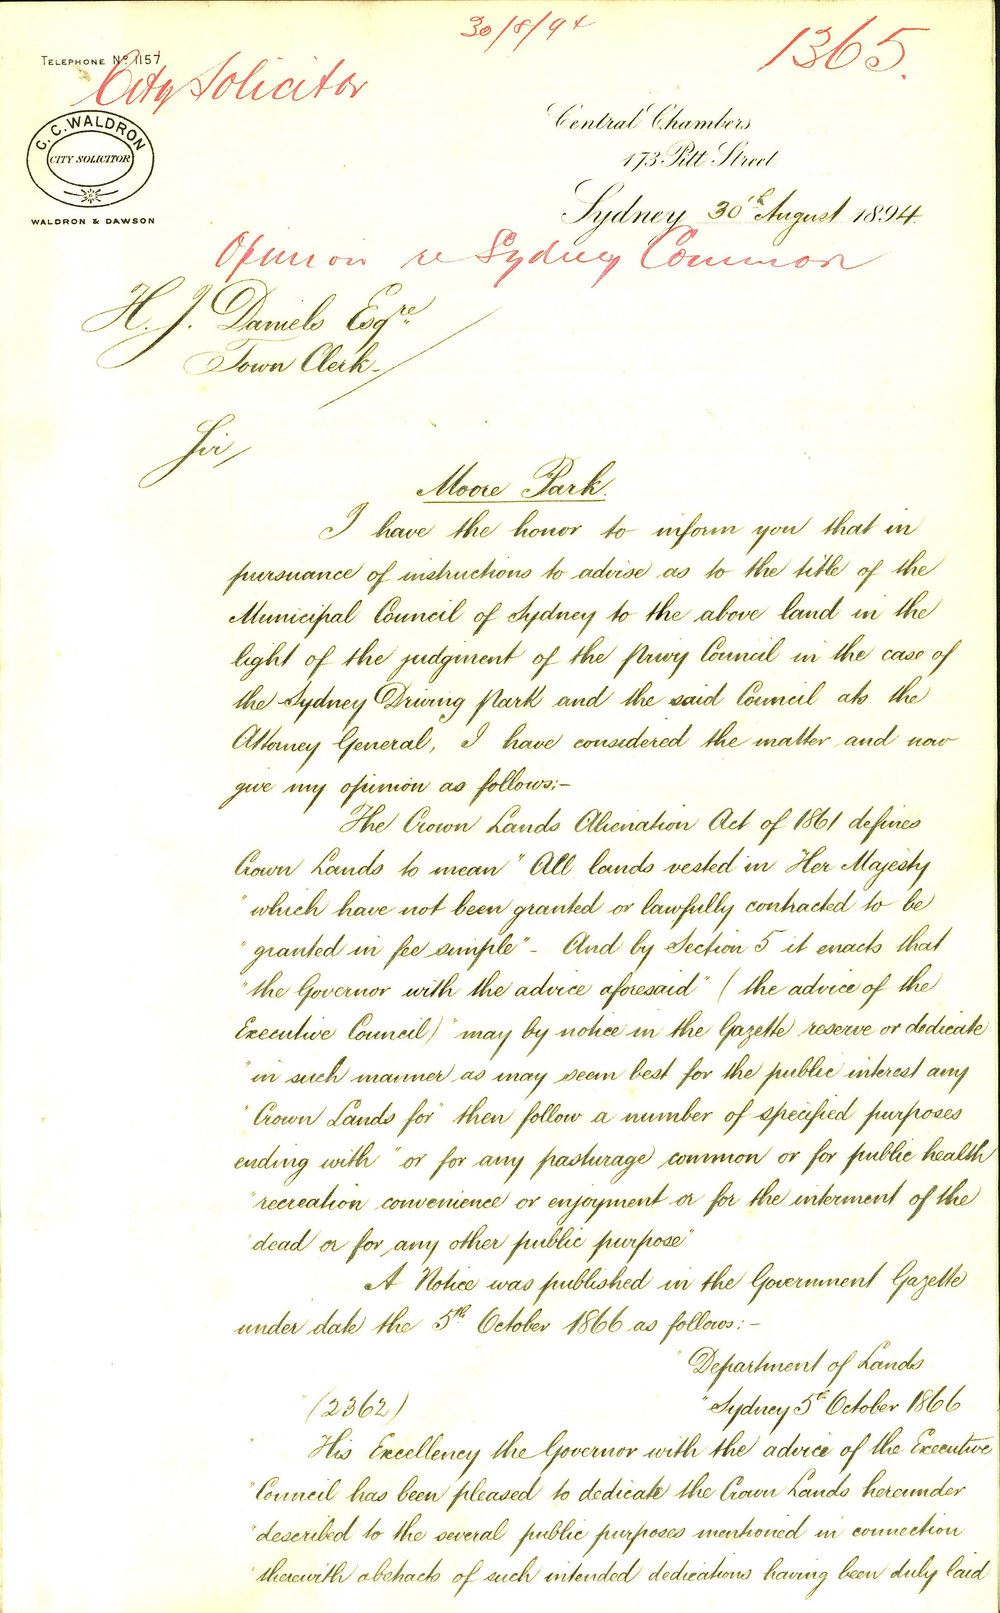 30/8/94
1365.
TELEPHONE No. 1157
City Solicitor
C. C. WALDRON
CITY SOLICITOR
WALDRON & DAWSON
Central Chambers
173 Pitt Street
Sydney 30th August 1894.
Opinion re Sydney Common
H. J. Daniels Esqre
Town Clerk
Sir,
Moore Park.
I have the honor to inform you that in
pursuance of instructions to advise as to the title of the
Municipal Council of Sydney to the above land in the
light of the judgment of the Privy Council in the case of
the Sydney Driving Park and the said Council ats the
Attorney General, I have considered the matter and now
give my opinion as follows:-
The Crown Lands Alienation Act of 1861 defines
Crown Lands to mean "All lands vested in Her Majesty
"which have not been granted or lawfully contracted to be
"granted in fee simple" - And by Section 5 it enacts that
"the Governor with the advice aforesaid" (the advice of the
Executive Council) "may by notice in the Gazette reserve or dedicate
"in such manner as may seem best for the public interest any
"Crown Lands for" then follow a number of specified purposes
ending with "or for any pasturage common or for public health
"recreation convenience or enjoyment or for the interment of the
"dead or for any other public purpose"
A Notice was published in the Government Gazette
under date the 5th October 1866 as follows:-
"Department of Lands
"(2362) "Sydney 5th October 1866
"His Excellency the Governor with the advice of the Executive
"Council has been pleased to dedicate the Crown Lands hereunder
"described to the several public purposes mentioned in connection
"therewith abstracts of such intended dedications having been duly laid